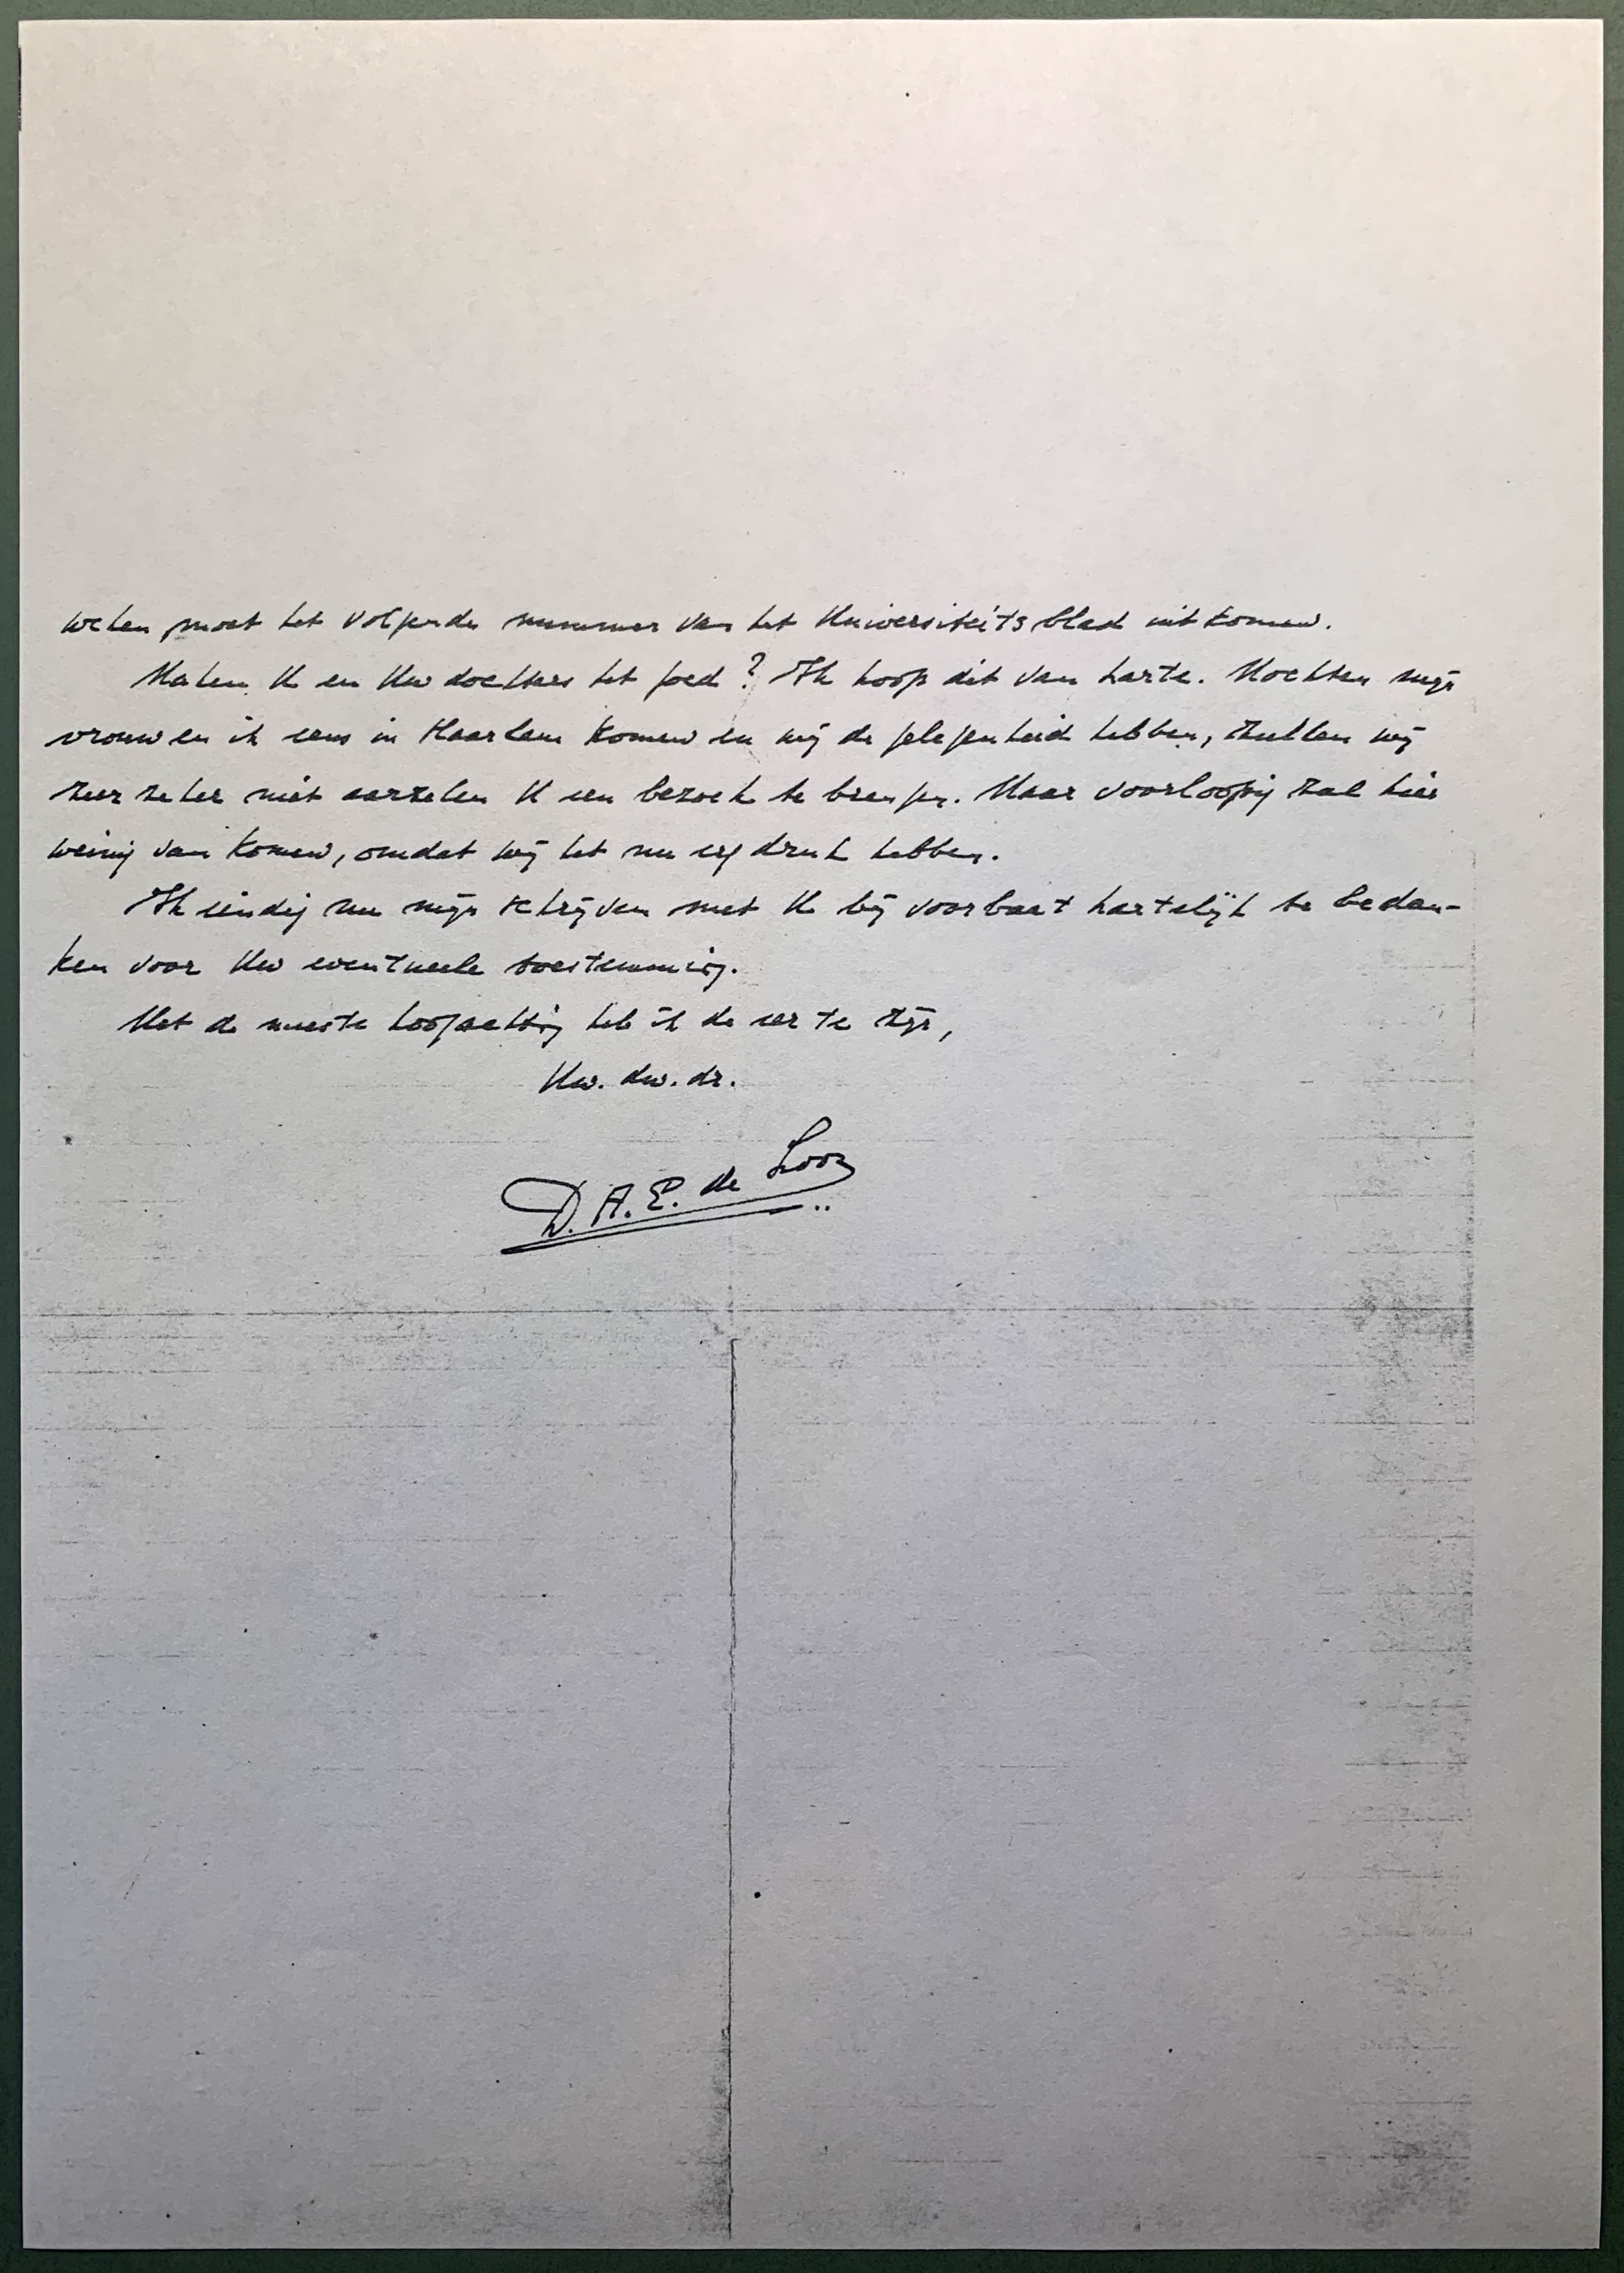 weken moet het volgende nummer van het Universiteitsblad uitkomen.
Maken U en Uw dochters het goed? Ik hoop dit van harte. Mochten mijn
vrouw en ik eens in Haarlem komen en wij de gelegenheid hebben, zullen wij
zeer zeker niet aarzelen U een bezoek te brengen. Maar voorloopig zal hier
weinig van komen, omdat wij het nu erg druk hebben.
Ik eindig nu mijn schrijven met U bij voorbaat hartelijk te bedan-
ken voor Uw eventueele toestemming.
Met de meeste hoogachting heb ik de eer te zijn,
Uw. dw. dr.
D. A. E. de Loor